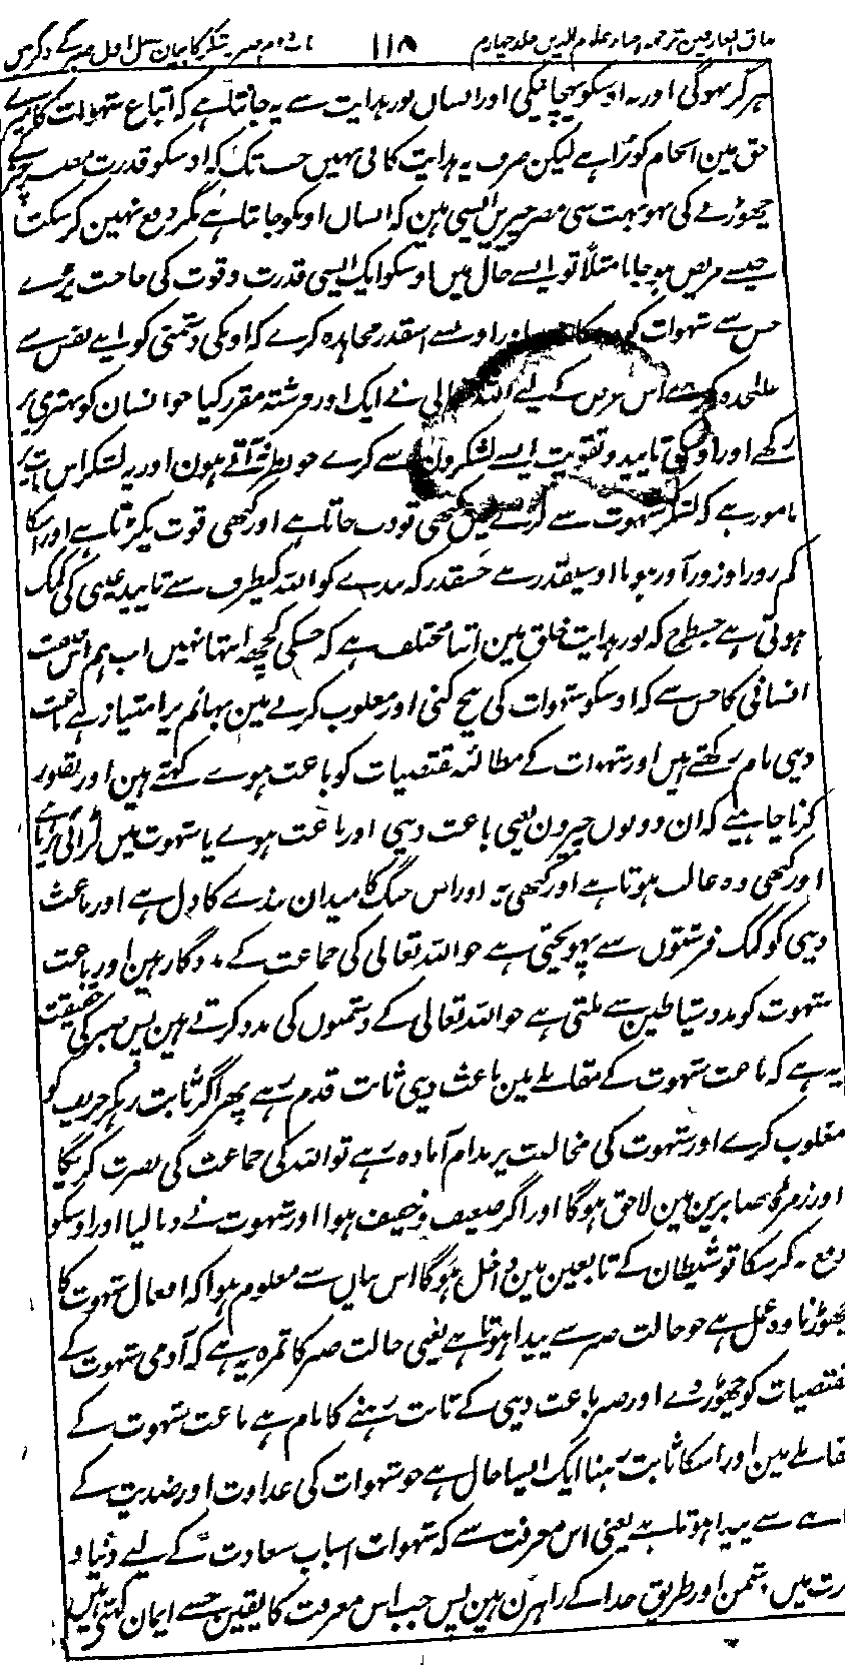 مذاق العارفین ترجمہ احیاء علوم الدین جلد چہارم ۱۱۵ باب دوم صبر و شکر کا بیان فصل اول صبر کے ذکر میں
ہرگز ہوگی اور نہ اوسکو پہچانیگی اور انسان نور ہدایت سے یہ جانتا ہے کہ اتباع شہوات کا میرے
حق مین انجام کو برا ہے لیکن صرف یہ ہدایت کافی نہیں جب تک کہ اوسکو قدرت مضر چیز کے
چھوڑنے کی نہو بہت سی مضر چیزیں ایسی ہین کہ انسان اونکو جانتا ہے مگر دفع نہین کر سکتا
جیسے مریض ہو جانا مثلاً تو ایسے حال میں اوسکو ایک ایسی قدرت و قوت کی حاجت پڑے
جس سے شہوات کو اور اونسے اسقدر مجاہدہ کرے کہ اونکی دشمنی کو اپنے نفس سے
علٰحدہ کردے اس غرض کے لیے اللہ تعالی نے ایک اور فرشتہ مقرر کیا جو انسان کو بہتری پر
رکھے اور اوسکی تایید و تقویت ایسے لشکرون سے کرے جو نظر نہ آتے ہون اور یہ لشکر اس بات پر
مامور ہے کہ لشکر شہوت سے لڑے پس کبھی تو دب جاتا ہے اور کبھی قوت پکڑتا ہے اور اسکا
کم زور اور زور آور ہونا اوسیقدر ہے جسقدر کہ بندے کو اللہ کیطرف سے تایید غیبی کی کمک
ہوتی ہے جسطرح کہ نور ہدایت خلق مین اتنا مختلف ہے کہ جسکی کچھ انتہا نہیں اب ہم اس صفت
انسانی کا جس سے کہ اوسکو شہوات کی بیخ کنی اور مغلوب کرنے مین بہائم پر امتیاز ہے باعث
دینی نام رکھتے ہیں اور شہوات کے مطالبہ مقتضیات کو باعث ہوے کہتے ہین اور تصور
کرنا چاہیے کہ ان دونوں چیزون یعنی باعث دینی اور باعث ہوے یا شہوت میں لڑائی برپا ہے
اور کبھی وہ غالب ہوتا ہے اور کبھی یہ اور اس جنگ کا میدان بندے کا دل ہے اور باعث
دینی کو کمک فرشتوں سے پہونچتی ہے جو اللہ تعالی کی جماعت کے مددگار ہین اور باعث
شہوت کو مدد شیاطین سے ملتی ہے جو اللہ تعالی کے دشمنوں کی مدد کرتے ہین پس صبر کی حقیقت
یہ ہے کہ باعث شہوت کے مقابلے مین باعث دینی ثابت قدم رہے پھر اگر ثابت رہکر حریف کو
مغلوب کرے اور شہوت کی مخالفت پر مدام آمادہ رہے تو اللہ کی جماعت کی نصرت کریگا
اور زمرۂ صابرین مین لاحق ہوگا اور اگر ضعیف و خفیف ہوا اور شہوت نے دبا لیا اور اوسکو
دفع نہ کر سکا تو شیطان کے تابعین مین داخل ہوگا اس بیاں سے معلوم ہوا کہ افعال شہوت کا
چھوڑنا وہ عمل ہے جو حالت صبر سے پیدا ہوتا ہے یعنی حالت صبر کا ثمرہ یہ ہے کہ آدمی شہوت کے
مقتضیات کو چھوڑ دے اور صبر باعث دینی کے ثابت رہنے کا نام ہے باعث شہوت کے
مقابلے مین اور اسکا ثابت رہنا ایک ایسا حال ہے جو شہوات کی عداوت اور ضدیت کے
جاننے سے پیدا ہوتا ہے یعنی اس معرفت سے کہ شہوات اسباب سعادت کے لیے دنیا و
آخرت میں دشمن اور طریق خدا کے راہزن ہین پس جب اس معرفت کا یقین جسے ایمان کہتے ہیں